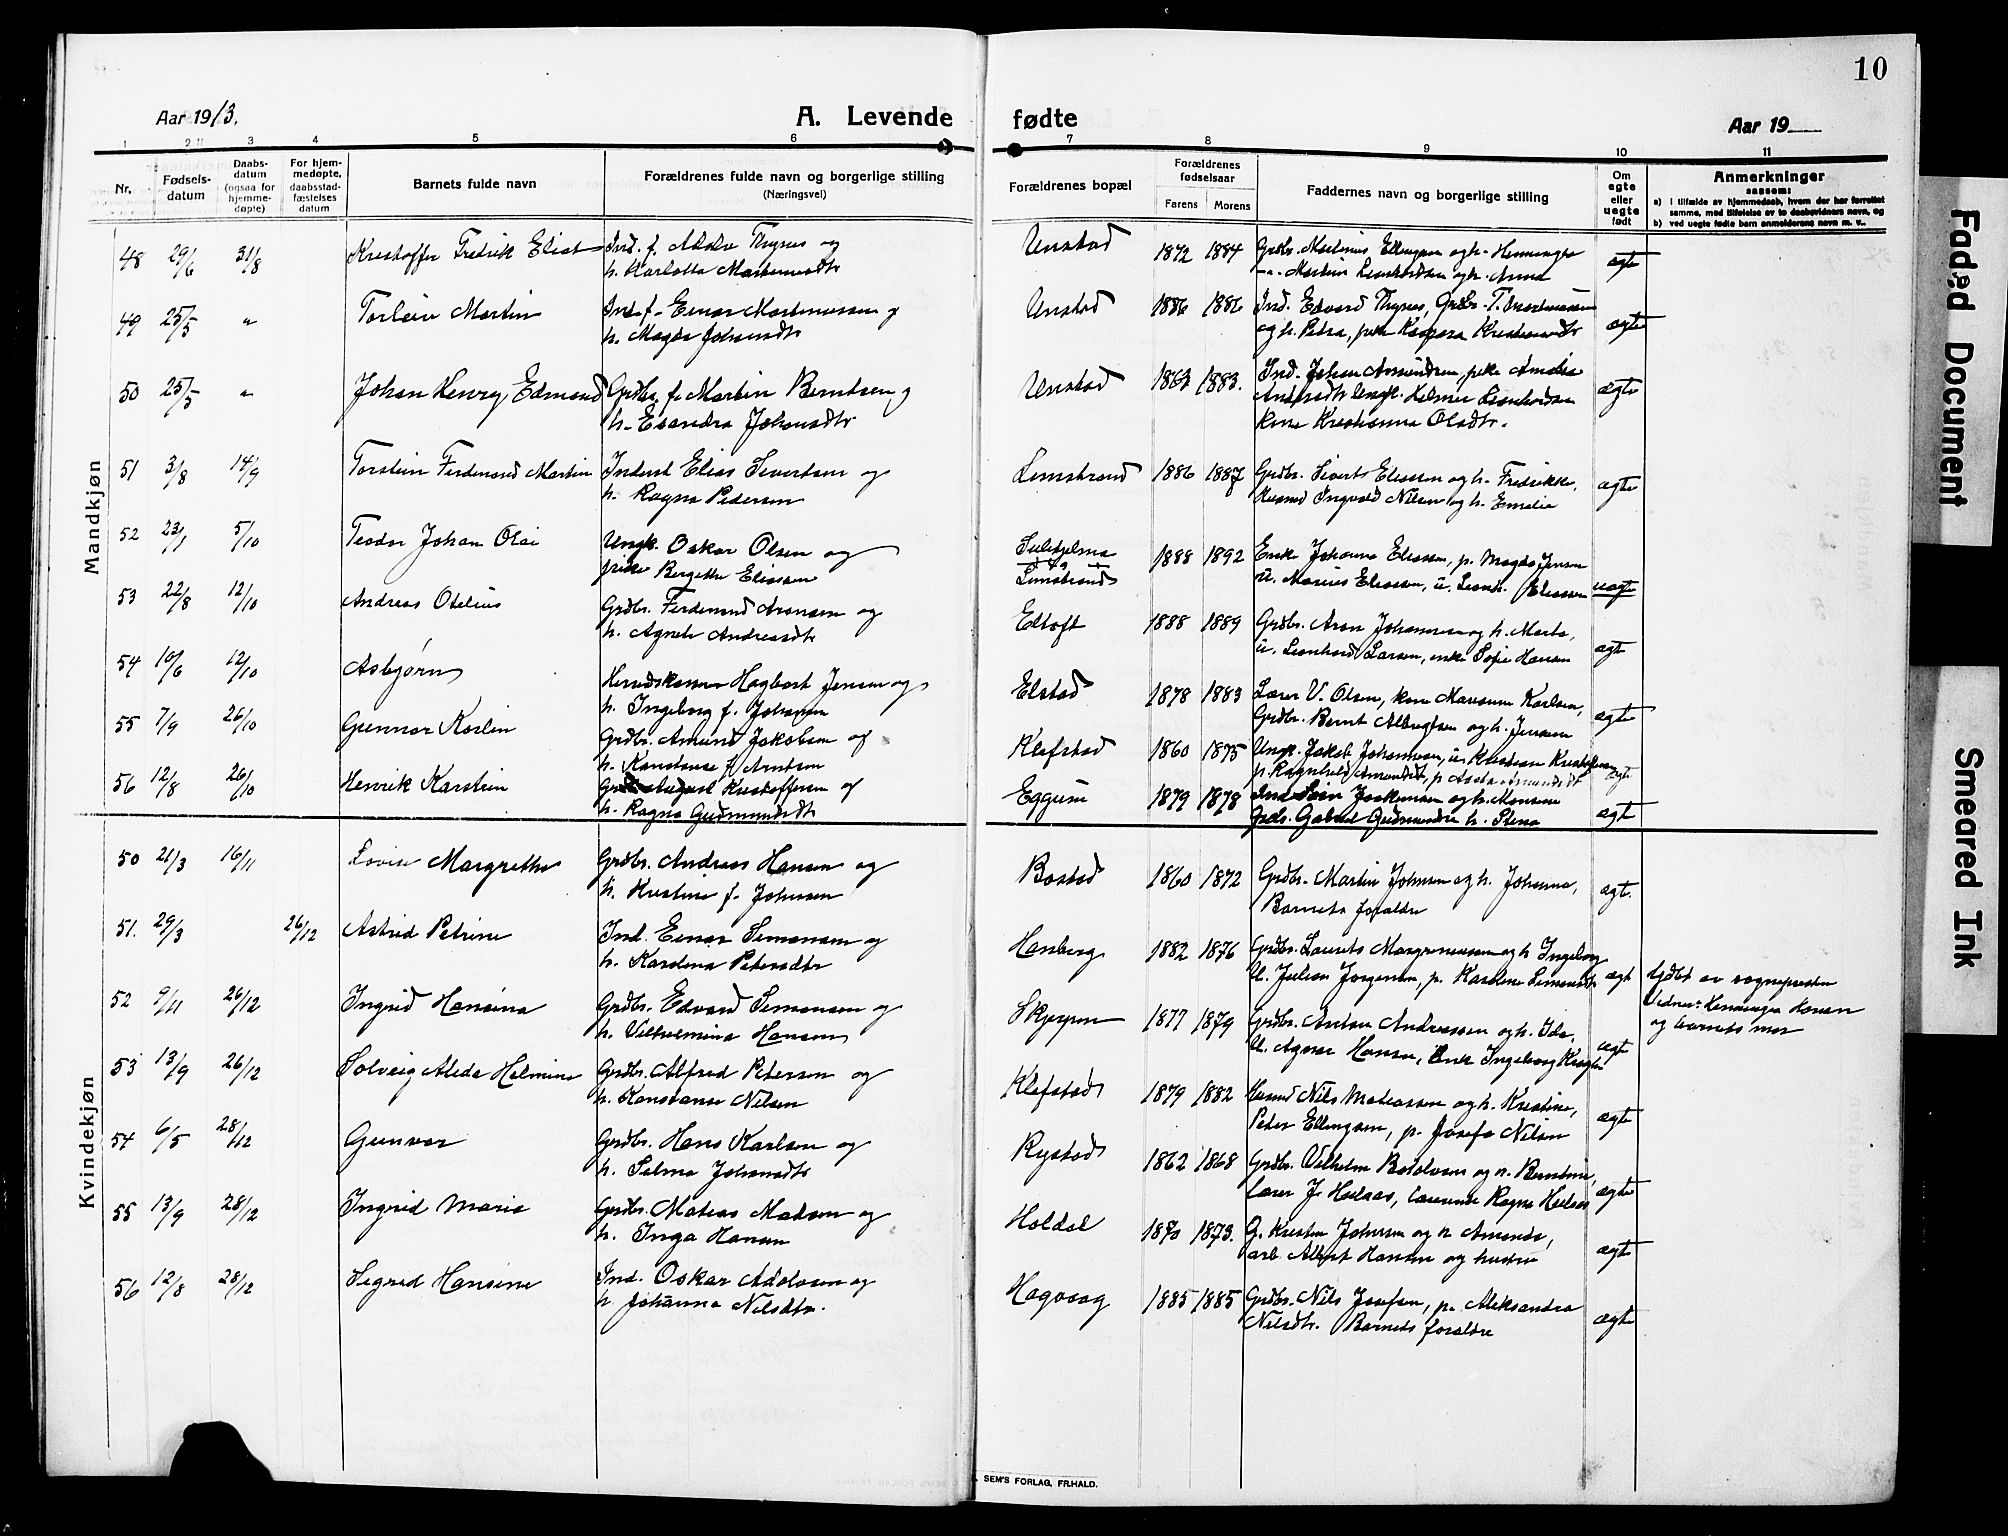 10
Aar 1913.
A. Levende
fødte
Aar 19
1 2 3 4 5 6 7 8 9 10 11
Nr.
Fødsels-
datum
Daabs-
datum
(ogsaa for
hjemme-
døpte)
For hjem-
medøpte,
daabsstad-
fæstelses
datum
Barnets fulde navn
Forældrenes fulde navn og borgerlige stilling
(Næringsvei)
Forældrenes bopæl
Forældrenes
fødselsaar
Farens Morens
Faddernes navn og borgerlige stilling
Om
ægte
eller
uægte
født
Anmerkninger
saasom:
a) i tilfælde av hjemmedaab, hvem der har forrettet
samme, med tilføielse av to daabsvidners navn, og
b) ved uægte fødte barn anmelderens navn m. v.
Mandkjøn
48 29/6 31/8 Kristoffer Fredrik Elias Ind. f. Adolv Thynes og Unstad 1872 1884 Grdbr. Meelnius Ellingsen og h. Henningka ægte
h. Karlotta Martinusdtr Martin Leonhardsen og h. Anna
49 25/5 " Torleiv Martin Ind. f. Einar Martinussen og Unstad 1886 1886 Ind. Edvard Thynes, Grdbr. T. Martinussen ægte
h. Magda Johansdtr og h. Petra, pike Kaspara Kristiansdtr
50 25/5 " Johan Henry Edmond Grdbr. f. Martin Berntsen og Unstad 1883. Ind. Johan Amundsen, pike Amalie ægte
h. Johansdtr Helmer Leonhardsen
Kone Kristianna Olsdtr.
51 3/8 14/9 Torstein Ferdinand Martin Inderst Elias Sivertsen og Limstrand 1886 1887 Grdbr. Sivert Eliassen og h. Fredrikke, ægte
h. Ragna Pedersen Husmd Ingvald Nilsen og h. Emelie
52 23/1 5/10 Teodor Johan Olai Ungk. Oskar Olsen og Sulitjelma 1888 1892 Enke Johanna Eliassen, p. Magda Jensen
pike Bergitte Eliassen Limstrand u. Marius Eliassen, u. Leonh. Eliassen uægte
53 22/8 12/10 Andreas Otelius Grdbr. Ferdinand Aronsen og Eltoft 1888 1889 Grdbr. Aron Johannesen og h. Marta, ægte
h. Agnete Andreasdtr u. Leonhard Larsen, enke Sofie Hansen
54 10/6 12/10 Asbjørn Hagbart Jensen og Elstad 1878 1883 Lærer V. Olsen, kone Karlsen, ægte
h. Ingeborg f. Johansen Grdbr. Bernt Albrigtsen og h. Jensen
55 7/9 26/10 Gunnar Karlin Grdbr. Amund Jakobsen og Klefstad 1860 1875 Ungk. Jakob Johannesen, u. Kristian Kristoffersen ægte
h. Konstanse f. Arntsen p. Ragnhild Amundsdt, p. Amundsdt
56 12/8 26/10 Henrik Karstein August Kristoffersen og Eggum 1879 1878 Ind. Joakimsen og h. Monsine ægte
h. Ragna Gudmundsdt Grdb. Gabriel Gudmundsen h. Stena
Kvindekjøn
50 21/3 16/11 Lovise Margrethe Grdbr. Andreas Hansen og Bostad 1860 1872 Grdbr. Martin Johnsen og h. Johanna, ægt.
h. Kristine f. Johnsen Barnets forældre
51. 29/3 26/12 Astrid Petrine Ind. Einar Simonsen og Hanberg 1882 1876 Grdbr. Laurits Margrenussen og h. Ingeborg ægt Hjdøbt av sognepresten
h. Kardena Petersdtr U. Julian Jorgensen, p. Karoline Simonsdtr Vidner: Henningen Hansen
og barnets mor
52 9/11 26/12 Ingrid Hansina Grdbr. Edvard Simonsen og Skjerpen 1877 1879 Grdbr. Anton Andreassen og h. Ida, ægte
h. Vilhelmina Hansen U. Agnar Hansen, Enk. Ingeborg
53 13/9 26/12 Solveig Aleda Helmine Grdbr. Alfred Petersen og Klefstad 1879 1882 Husmd Nils Mateassen og h. Kristine, ægte
h. Konstanse Nilsen Peter Ellingsen, p. Josefa Nilsen
54 6/5 28/12 Gunvor Grdbr. Hans Karlsen og Rystad 1862 1868 Grdbr. Vilhelm og h. Berntine, ægte
h. Selma Johansdtr Lærer J. Heilaas, lærerinde Ragna Heilaas
55 13/9 28/12 Ingrid Marie Grdbr. Mateas Madsen og Holdal 1870 1873. G. Kristen Johnsen og h. Amanda, ægte
h. Inga Hansen arb. Albert Hansen og hustru
56 12/8 28/12 Sigrid Hansine Ind. Oskar Adolvsen og Hagvaag 1885 1885 Grdbr. Nils Josefsen, p. Aleksandra ægte
h. Johanna Nilsdtr. Nilsdtr. Barnets forældre
SEM'S FORLAG, FR.HALD.
Faded Document
Smeared Ink